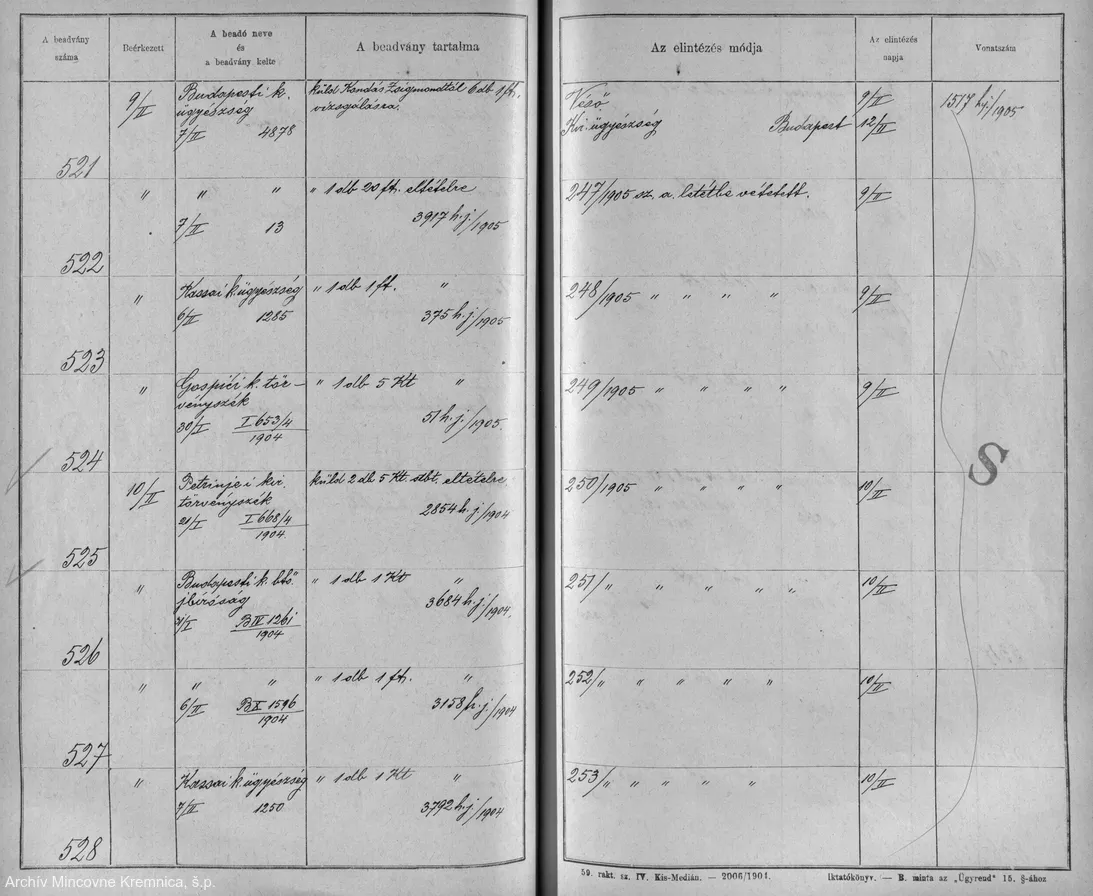 A beadvány száma
Beérkezett
A beadó neve és a beadvány kelte
A beadvány tartalma
Az elintézés módja
Az elintézés napja
Vonatszám
9/II
Budapesti k. ügyészség
7/II 4878
küld Kondás Zsigmondtól 6 db 1 ft. vizsgálásra.
Véső 9/II
Kir. ügyészség Budapest 12/II
1517 h.j./1905
521
" " "
7/II 13
" 1 db 20 ft. eltételre
3917 h.j./1905
247/1905 sz. a. letétbe vétetett. 9/II
522
" Kassai k. ügyészség
6/II 1285
" 1 db 1 ft. "
375 h.j./1905
248/1905 " " " " 9/II
523
" Gospići k. törvényszék
30/I I 653/4 1904
" 1 db 5 Kt "
51 h.j./1905.
249/1905 " " " " 9/II
524
10/II
Petrinjei kir. törvényszék
21/I I 668/4 1904
küld 2 db 5 Kt. stbt. eltételre
2854 h.j./1904
250/1905 " " " " 10/II
525
" Budapesti k. btő jbíróság
B IV 1261 1904
" 1 db 1 Kt "
3684 h.j./1904.
251/" " " " " 10/II
526
" " "
6/II B X 1596 1904
" 1 db 1 ft. "
3158 h.j./1904
252/" " " " " 10/II
527
" Kassai k. ügyészség
7/II 1250
" 1 db 1 Kt "
3792 h.j./1904
253/" " " " " 10/II
528
S
59. rakt. sz. IV. Kis-Medián. — 2006/1904.
Iktatókönyv. — B. minta az „Ügyrend" 15. §-ához
Archív Mincovne Kremnica, š.p.